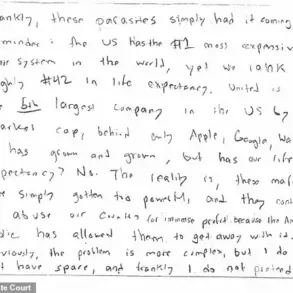 ankly, these parasites simply had it coming
minder: the US has the #1 most expensive
system in the world, yet we rank
ghly #42 in life expectancy. United is
5th largest company in the US by
arket cap, behind only Apple, Google, Wa
has grown and grown, but has our life
pectancy? No. The reality is, these maf
simply gotten too powerful, and they cont
abuse our country for immense profit because the Am
lic has allowed them to get away with it.
viously, the problem is more complex, but I do
t have space, and frankly I do not pretend
te Court